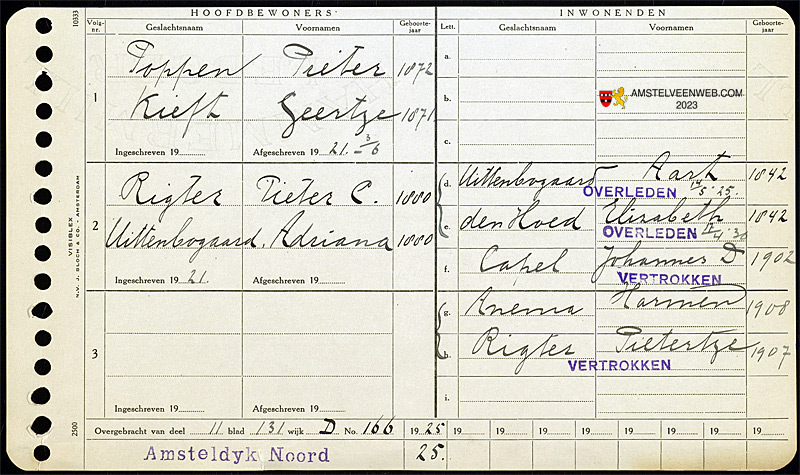 HOOFDBEWONERS
INWONENDEN
10333
Volg-nr.
Geslachtsnaam
Voornamen
Geboorte-jaar
Lett.
Geslachtsnaam
Voornamen
Geboorte-jaar
1
Poppen Pieter 1872
Kieft Geertje 1871
Ingeschreven 19
Afgeschreven 19 21. 3/6
a.
b.
AMSTELVEENWEB.COM
2023
c.
2
Rigter Pieter C. 1880
Uittenbogaard, Adriana 1880
Ingeschreven 19 21.
Afgeschreven 19
d. Uittenbogaard Aart 1842
OVERLEDEN 14/5 '25
e. den Hoed Elisabeth 1842
OVERLEDEN
f. Capel Johannes D. 1902
VERTROKKEN
3
Ingeschreven 19
Afgeschreven 19
g. Anema Harmen 1908
h. Rigter Pietertje 1907
VERTROKKEN
i.
VISIBLEX
N.V. J. BLOCH & CO. - AMSTERDAM
2500
Overgebracht van deel 11 blad 131 wijk D No. 166 19 25 19 19 19 19 19 19 19 19
Amsteldyk Noord 25.